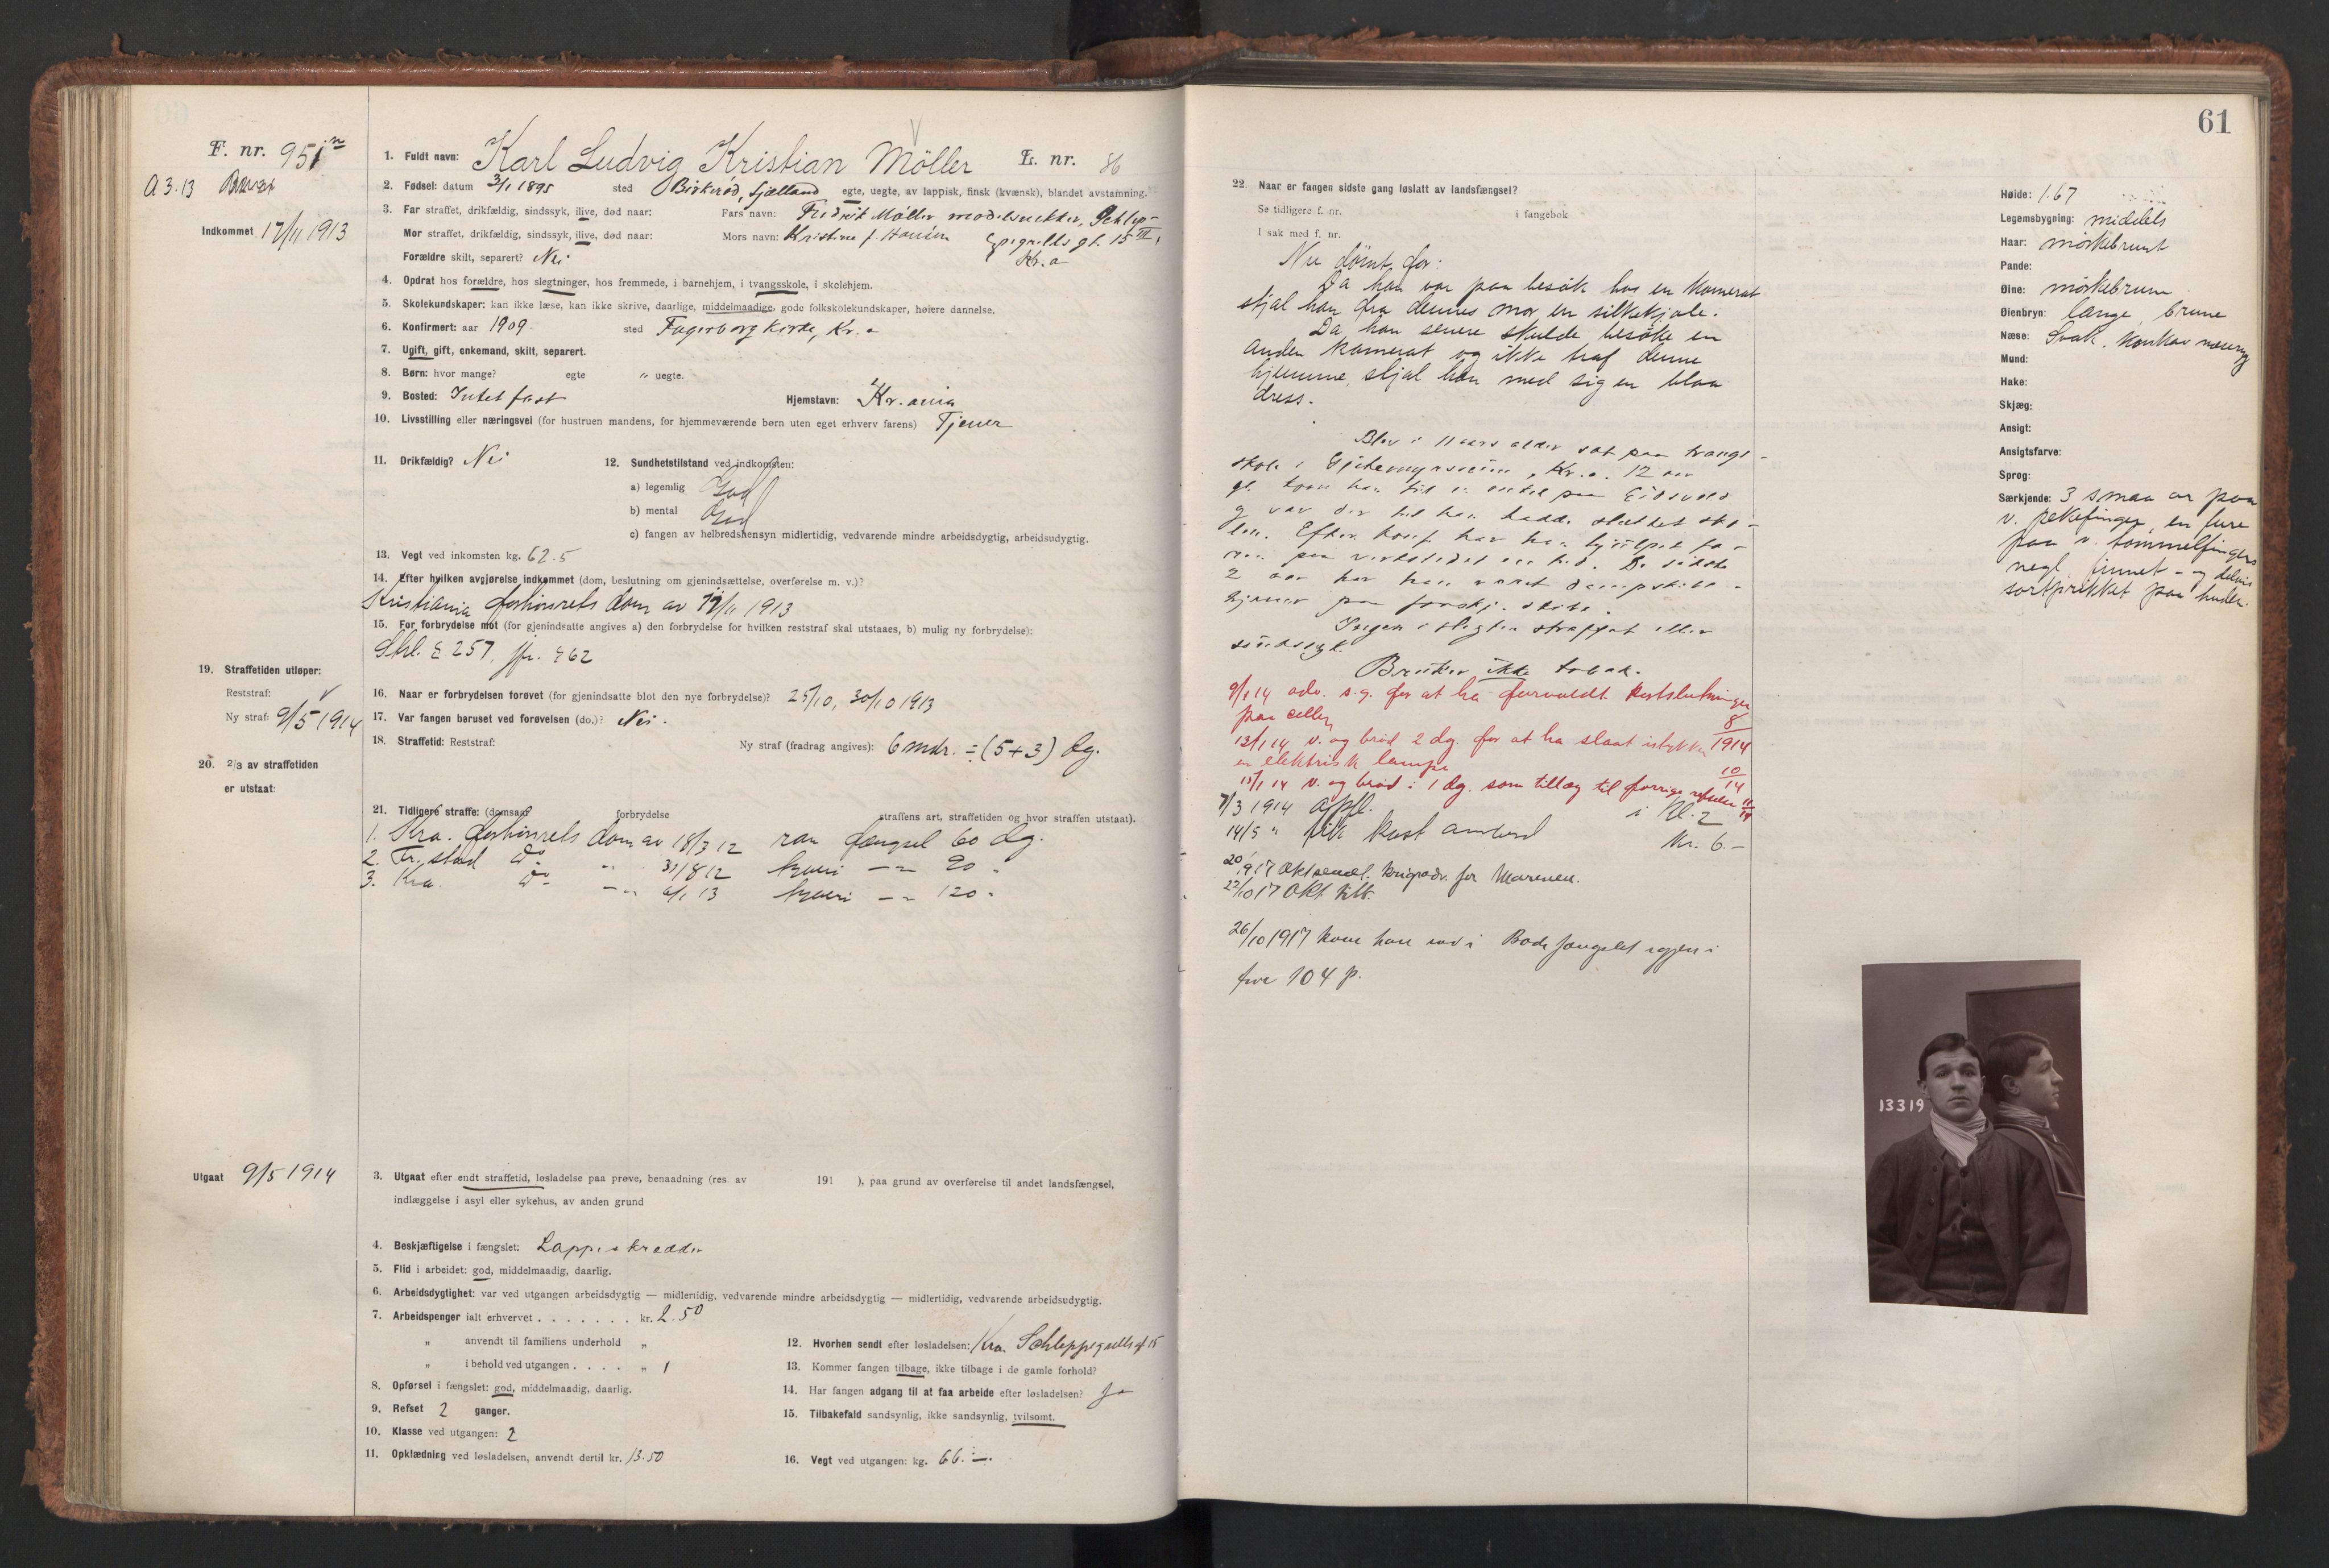 F. nr. 951
A 3.13
Indkommet 17/11 1913
1. Fuldt navn: Karl Ludvig Kristian Möller L. nr. 86
2. Fødsel: datum 3/1 1895 sted Birkerød, Sjælland egte, uegte, av lappisk, finsk (kvænsk), blandet avstamning.
3. Far straffet, drikfældig, sindssyk, ilive, død naar: Fars navn: Fredrik Møller modelsnekker, Schlep-
Mor straffet, drikfældig, sindssyk, ilive, død naar: Mors navn: Kristine f. Hansen pegrells gt. 15 III,
Forældre skilt, separert? Nei Kr.a
4. Opdrat hos forældre, hos slegtninger, hos fremmede, i barnehjem, i tvangsskole, i skolehjem.
5. Skolekundskaper: kan ikke læse, kan ikke skrive, daarlige, middelmaadige, gode folkskolekundskaper, høiere dannelse.
6. Konfirmert: aar 1909 sted Fagerborg kirke, Kr.a
7. Ugift, gift, enkemand, skilt, separert.
8. Børn: hvor mange? egte " uegte.
9. Bosted: Intet fast Hjemstavn: Kr.ania
10. Livsstilling eller næringsvei (for hustruen mandens, for hjemmeværende børn uten eget erhverv farens) Tjener
11. Drikfældig? Nei 12. Sundhetstilstand ved indkomsten:
a) legemlig God
b) mental God
c) fangen av helbredshensyn midlertidig, vedvarende mindre arbeidsdygtig, arbeidsudygtig.
13. Vegt ved inkomsten kg. 62.5
14. Efter hvilken avgjørelse indkommet (dom, beslutning om gjenindsættelse, overførelse m. v.)?
Kristiania forhørsrets dom av 17/11 1913
15. For forbrydelse mot (for gjenindsatte angives a) den forbrydelse for hvilken reststraf skal utstaaes, b) mulig ny forbrydelse):
Strl. § 257, jfr. § 62
19. Straffetiden utløper:
Reststraf:
Ny straf: 9/5 1914
16. Naar er forbrydelsen forøvet (for gjenindsatte blot den nye forbrydelse)? 25/10, 30/10 1913
17. Var fangen beruset ved forøvelsen (do.)? Nei.
18. Straffetid: Reststraf: Ny straf (fradrag angives): 6 mdr. ÷ (5+3) dg.
20. 2/3 av straffetiden
er utstaat:
21. Tidligere straffe: (domsaar forbrydelse straffens art, straffetiden og hvor straffen utstaat).
1. Kra. forhørsrets dom av 18/3 12 ran fængsel 60 dg.
2. Fr.stad do " 31/8 12 tyveri — " — 90 "
3. Kra. do — " — 6/1 13 tyveri — " — 120 "
Utgaat 9/5 1914
3. Utgaat efter endt straffetid, løsladelse paa prøve, benaadning (res. av 191 ), paa grund av overførelse til andet landsfængsel,
indlæggelse i asyl eller sykehus, av anden grund
4. Beskjæftigelse i fængslet: Lappeskrædder
5. Flid i arbeidet: god, middelmaadig, daarlig.
6. Arbeidsdygtighet: var ved utgangen arbeidsdygtig — midlertidig, vedvarende mindre arbeidsdygtig — midlertidig, vedvarende arbeidsudygtig.
7. Arbeidspenger ialt erhvervet . . . . . . . kr. 2.50
" anvendt til familiens underhold "
" i behold ved utgangen . . . . " 1
8. Opførsel i fængslet: god, middelmaadig, daarlig.
9. Refset 2 ganger.
10. Klasse ved utgangen: 2
11. Opklædning ved løsladelsen, anvendt dertil kr. 13.50
12. Hvorhen sendt efter løsladelsen: Kra. Schleppegrells gt 15
13. Kommer fangen tilbage, ikke tilbage i de gamle forhold?
14. Har fangen adgang til at faa arbeide efter løsladelsen? Ja
15. Tilbakefald sandsynlig, ikke sandsynlig, tvilsomt.
16. Vegt ved utgangen: kg. 66.—.
61
22. Naar er fangen sidste gang løslatt av landsfængsel?
Se tidligere f. nr. i fangebok
I sak med f. nr.
Nu dømt for:
Da han var paa besøk hos en kamerat
stjal han fra dennes mor en silkekjole.
Da han senere skulde besøke en
anden kamerat og ikke traf denne
hjemme, stjal han med sig en blaa
dress.
Blev i 11 aars alder sat paa tvangs-
skole i Gjetemyrsveien, Kr.a. 12 aar
gl. kom han til en onkel paa Eidsvold
og var der til han hadde sluttet sko-
len. Efter konf. har han hjulpet fa-
ren paa verkstedet en tid. De sidste
2 aar har han været dampskibs-
tjener paa forskj. skibe.
Ingen i slegten straffet eller
sindssyk.
Bruker ikke tobak.
9/1 14 adv. s.g. for at ha forvoldt kortslutninger
paa cellen 8/1914
13/1 14 v. og brød 2 dg. for at ha slaat istykker
en elektrisk lampe 10/14
15/1 14 v. og brød i 1 dg. som tillæg til forrige refselse 11/14
7/3 1914 opfl. i kl. 2
14/5 " fik kost Kr. 6.—
20/9 17 Akt sendt. krigsadv. for Marinen.
22/10 17 Akt tilb.
26/10 1917 kom han ind i Bodsfængslet igjen i
fra 104 p.
Høide: 1.67
Legemsbygning: middels
Haar: mørkebrunt
Pande:
Øine: mørkebrune
Øienbryn: lange, brune
Næse: Svak, konkav næseryg
Mund:
Hake:
Skjæg:
Ansigt:
Ansigtsfarve:
Sprog:
Særkjende: 3 smaa ar paa
v. pekefinger, en fure
paa v. tommelfingers
negl, finnet - og delvis
sortprikket paa huden.
13319